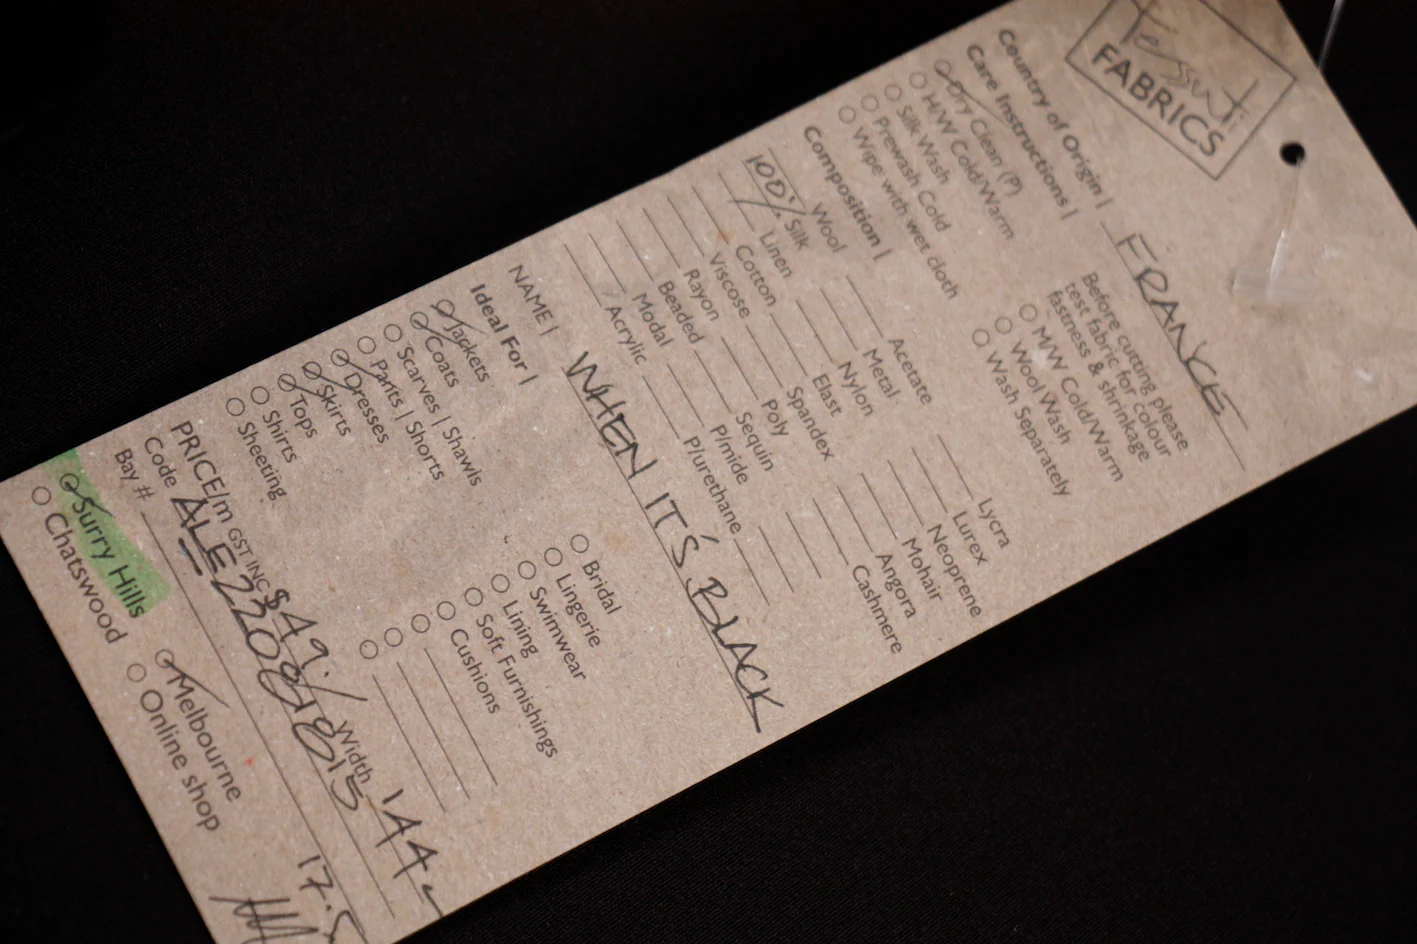 Tessuti
FABRICS
Country of Origin | FRANCE
Care Instructions |
Dry Clean (P)
H/W Cold/Warm
Silk Wash
Prewash Cold
Wipe with wet cloth
Before cutting please
test fabric for colour
fastness & shrinkage
M/W Cold/Warm
Wool Wash
Wash Separately
Composition |
Wool
100% Silk
Linen
Cotton
Viscose
Rayon
Beaded
Modal
Acrylic
Acetate
Metal
Nylon
Elast
Spandex
Poly
Sequin
P/mide
P/urethane
Lycra
Lurex
Neoprene
Mohair
Angora
Cashmere
NAME | WHEN IT'S BLACK
Ideal For |
Jackets
Coats
Scarves | Shawls
Pants | Shorts
Dresses
Skirts
Tops
Shirts
Sheeting
Bridal
Lingerie
Swimwear
Lining
Soft Furnishings
Cushions
PRICE/m GST INC $49. Width 144
Code
Bay #
Surry Hills
Chatswood
Melbourne
Online shop